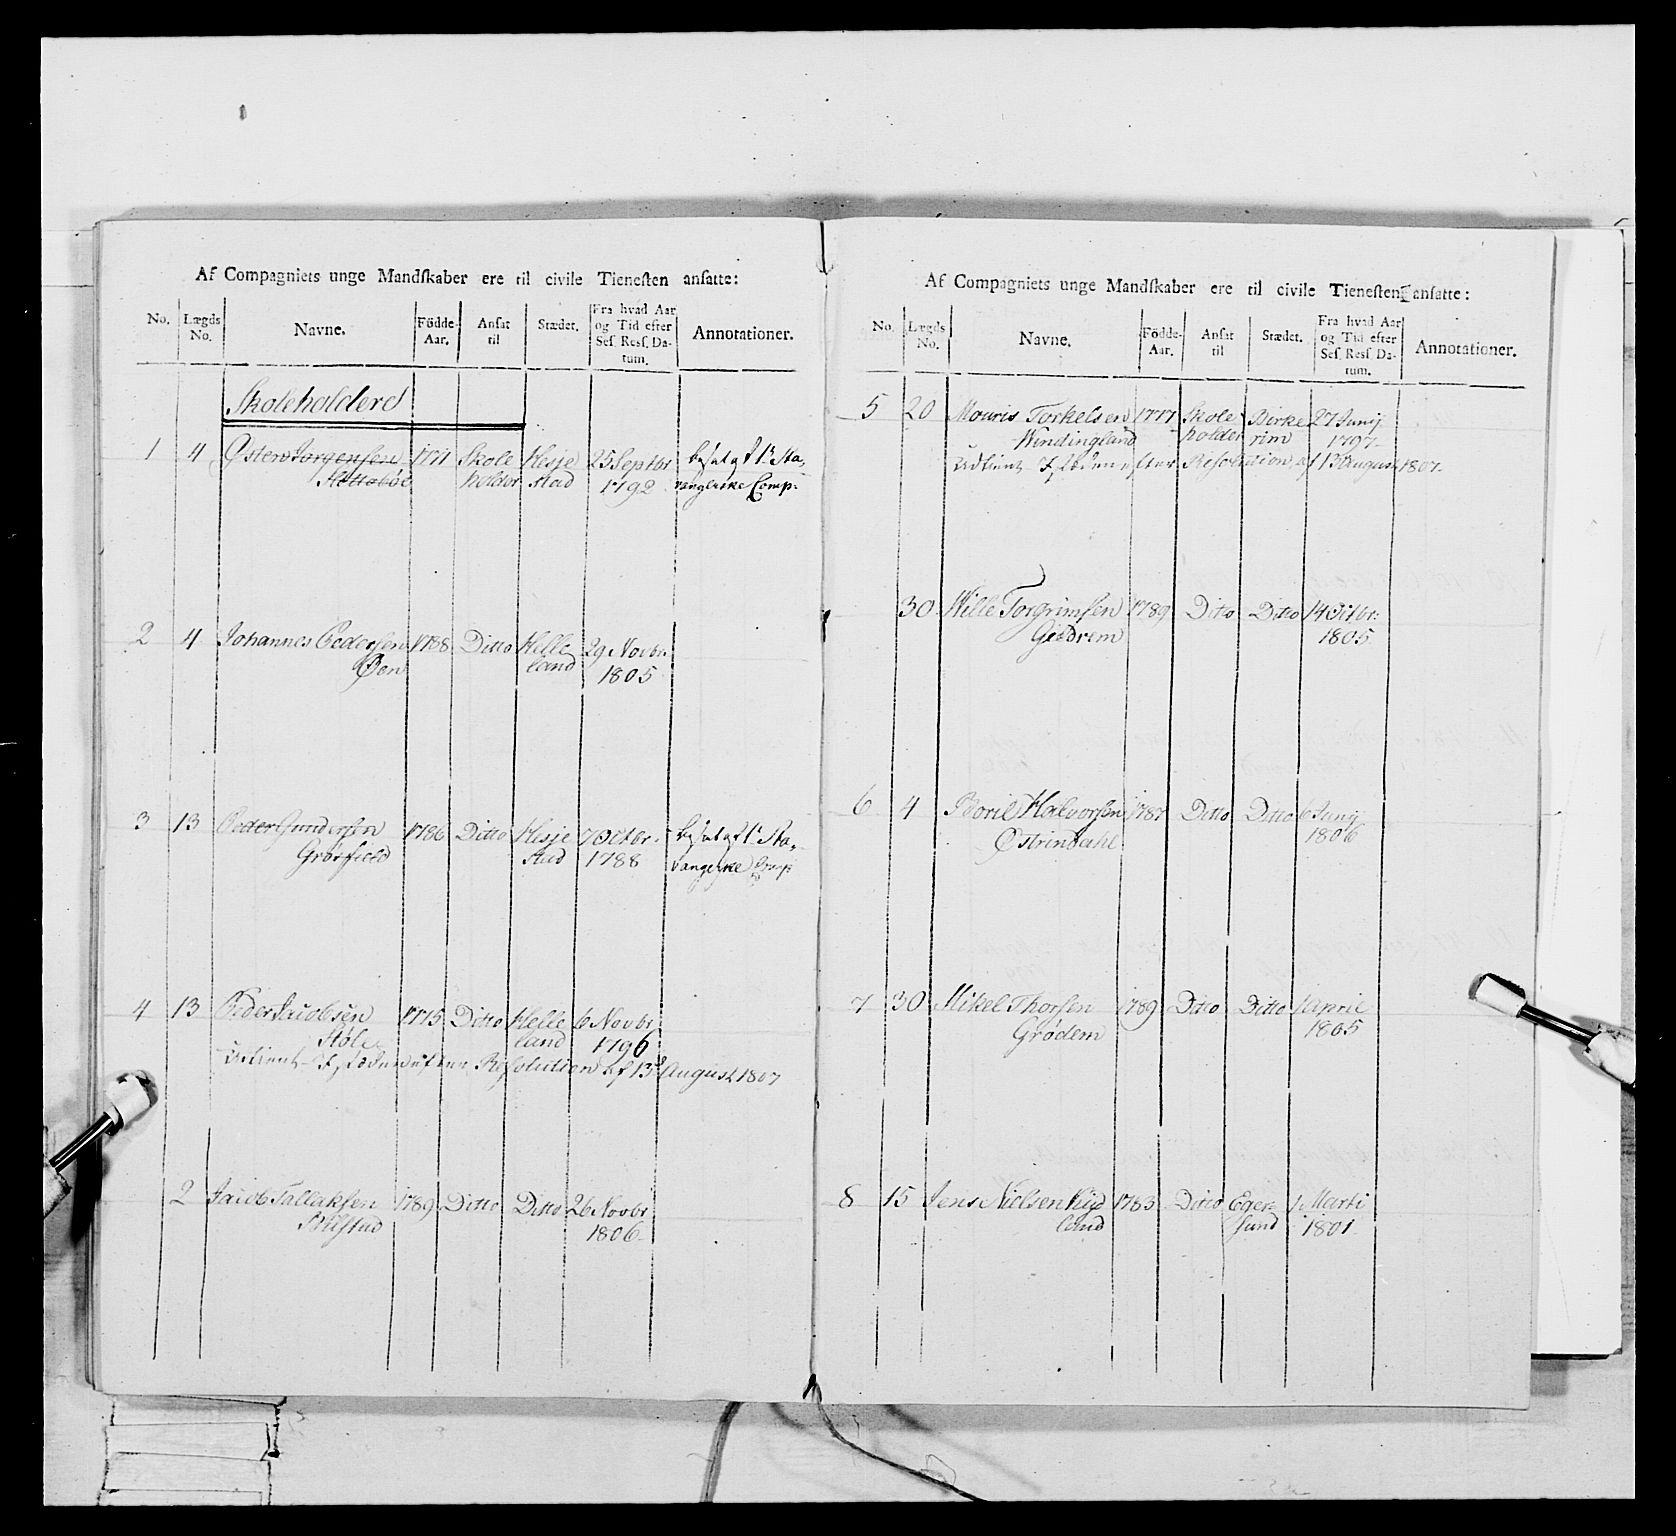 Af Compagniets unge Mandskaber ere til civile Tienesten ansatte:
No. Lægds No. Navne. Födde-Aar. Ansat til Stædet. Fra hvad Aar og Tid efter Ses. Ress. Datum. Annotationer.
Skoleholdere
1 4 Østen Jorgensen 1771 Skole Hesje 25 Septbr
holder stad 1792 Comp:
2 4 Johannes Pedersen 1788 Ditto Helle 29 Novbr.
Øen land 1805
3 13 Peder Gundersen 1786 Ditto Hesje 7 Octbr.
Grøsfield stad 1788
4 13 Peder Jacobsen 1775 Ditto Helle 6 Novbr
Støle land 1796
Resolution af 13 August 1807
2 Jacob Tallaksen 1789 Ditto Ditto 26 Novbr
1806
Af Compagniets unge Mandskaber ere til civile Tienesten ansatte:
No. Lægds No. Navne. Födde-Aar. Ansat til Stædet. Fra hvad Aar og Tid efter Ses. Ress. Datum. Annotationer.
5 20 Mouris Torkelsen 1777 Skole Birke 27 Junij
Windingland holder rim 1797
efter Resolution af 13 August 1807.
30 Wille Torgrimsen 1789 Ditto Ditto 14 Octbr:
Gisdrem 1805
6 4 Halvorsen 1787 Ditto Ditto 6 Junij
Østrindahl 1806
7 30 Mikel Thorsen 1789 Ditto Ditto 1 April
Grødem 1805
8 15 Jens Nielsen Hyd 1783 Ditto Eger- 1 Marti
land sund 1801